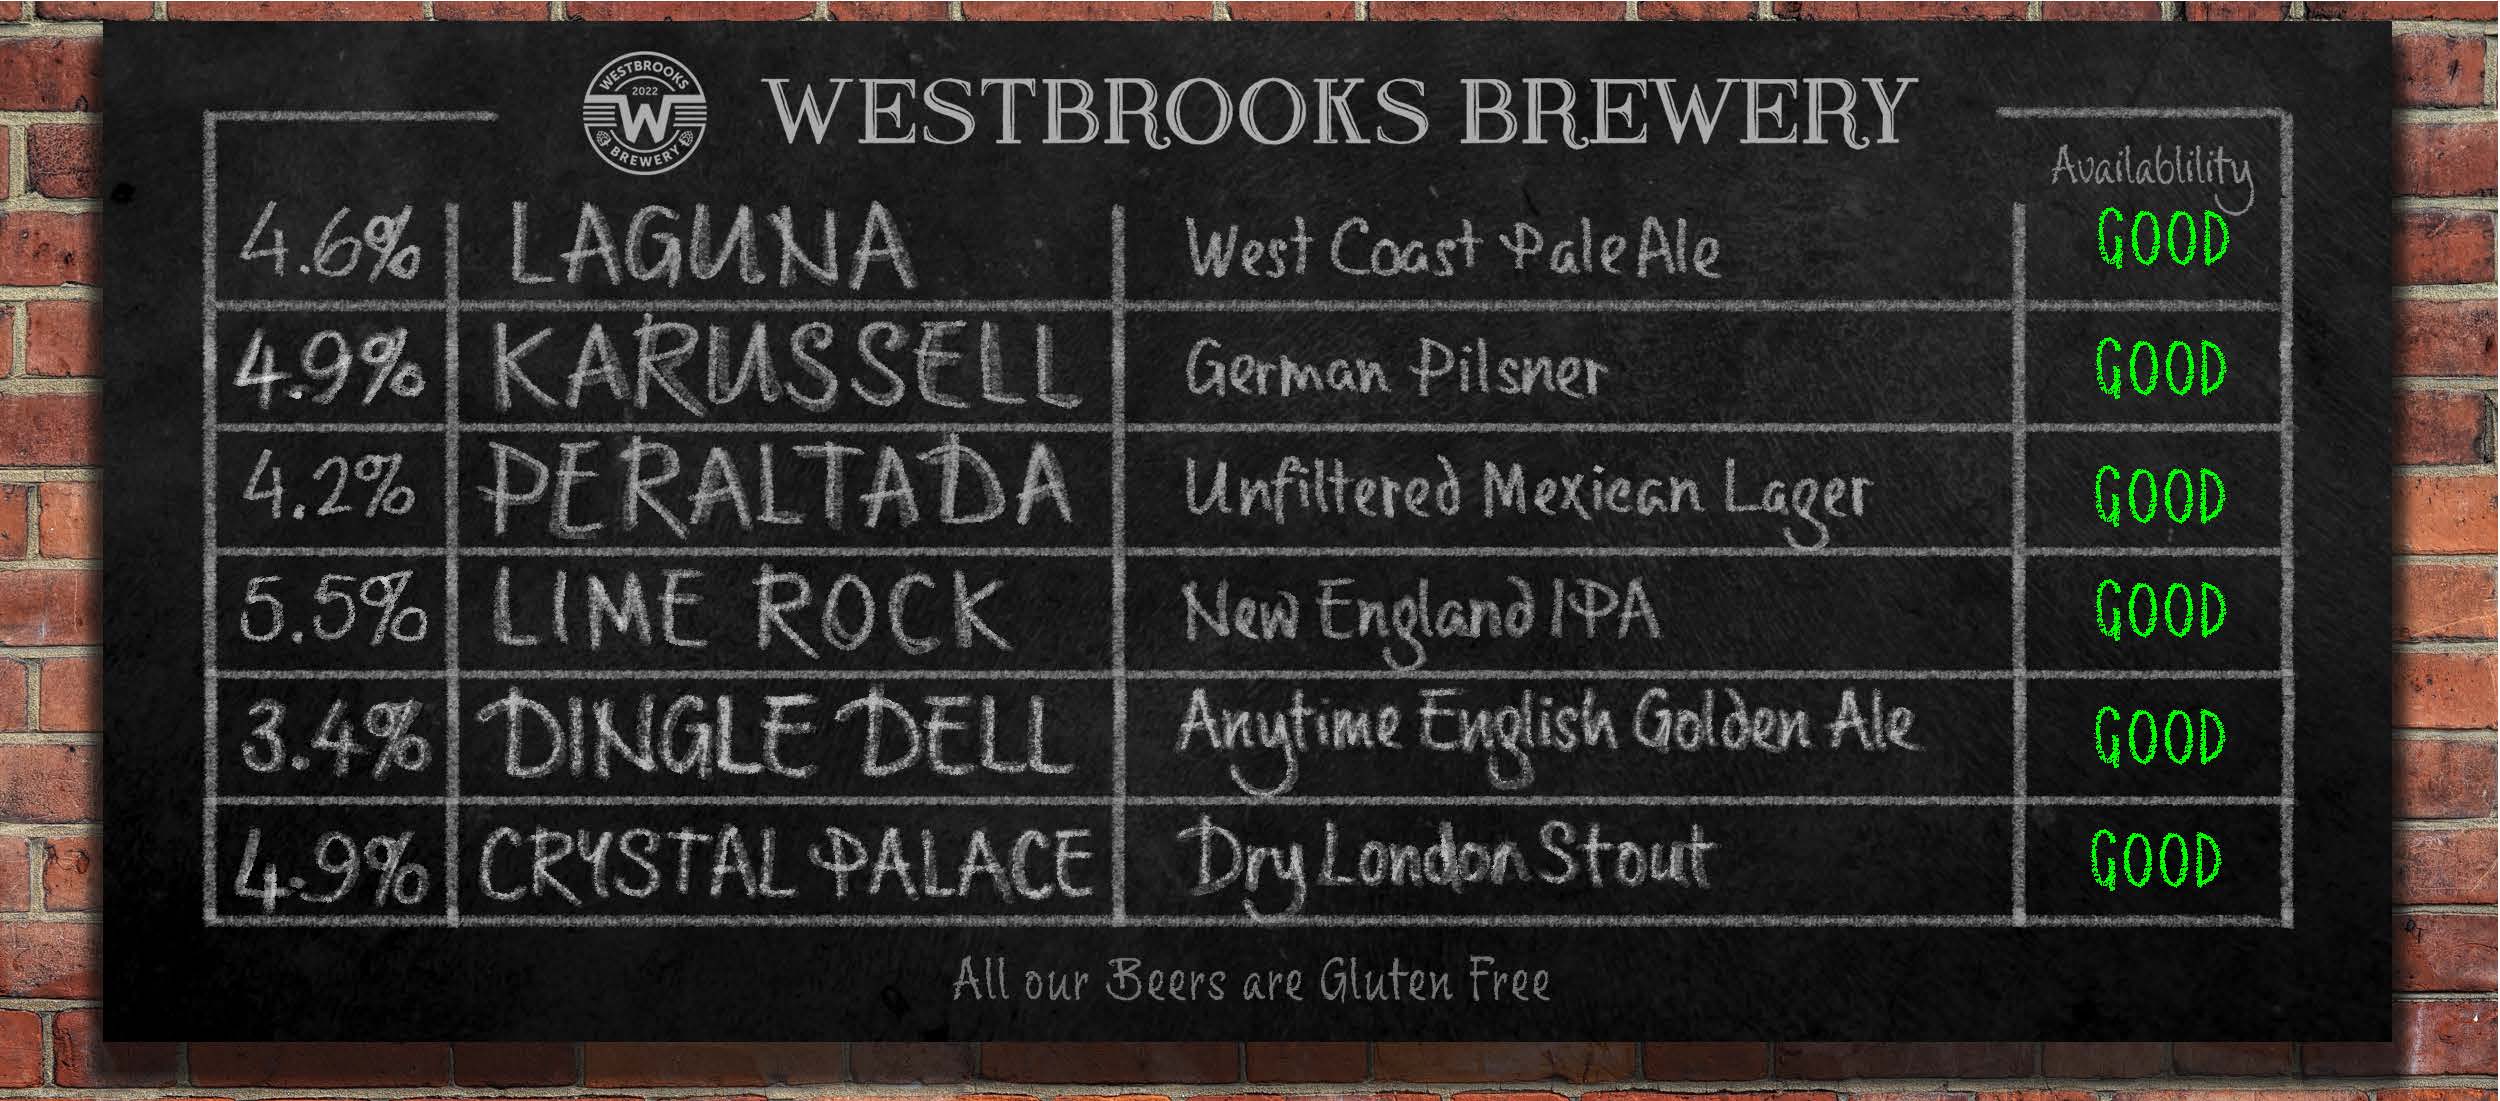 WESTBROOKS
2022
W
BREWERY
WESTBROOKS BREWERY
Availablility
4.6% LAGUNA West Coast Pale Ale GOOD
4.9% KARUSSELL German Pilsner GOOD
4.2% PERALTADA Unfiltered Mexican Lager GOOD
5.5% LIME ROCK New England IPA GOOD
3.4% DINGLE DELL Anytime English Golden Ale GOOD
4.9% CRYSTAL PALACE Dry London Stout GOOD
All our Beers are Gluten Free